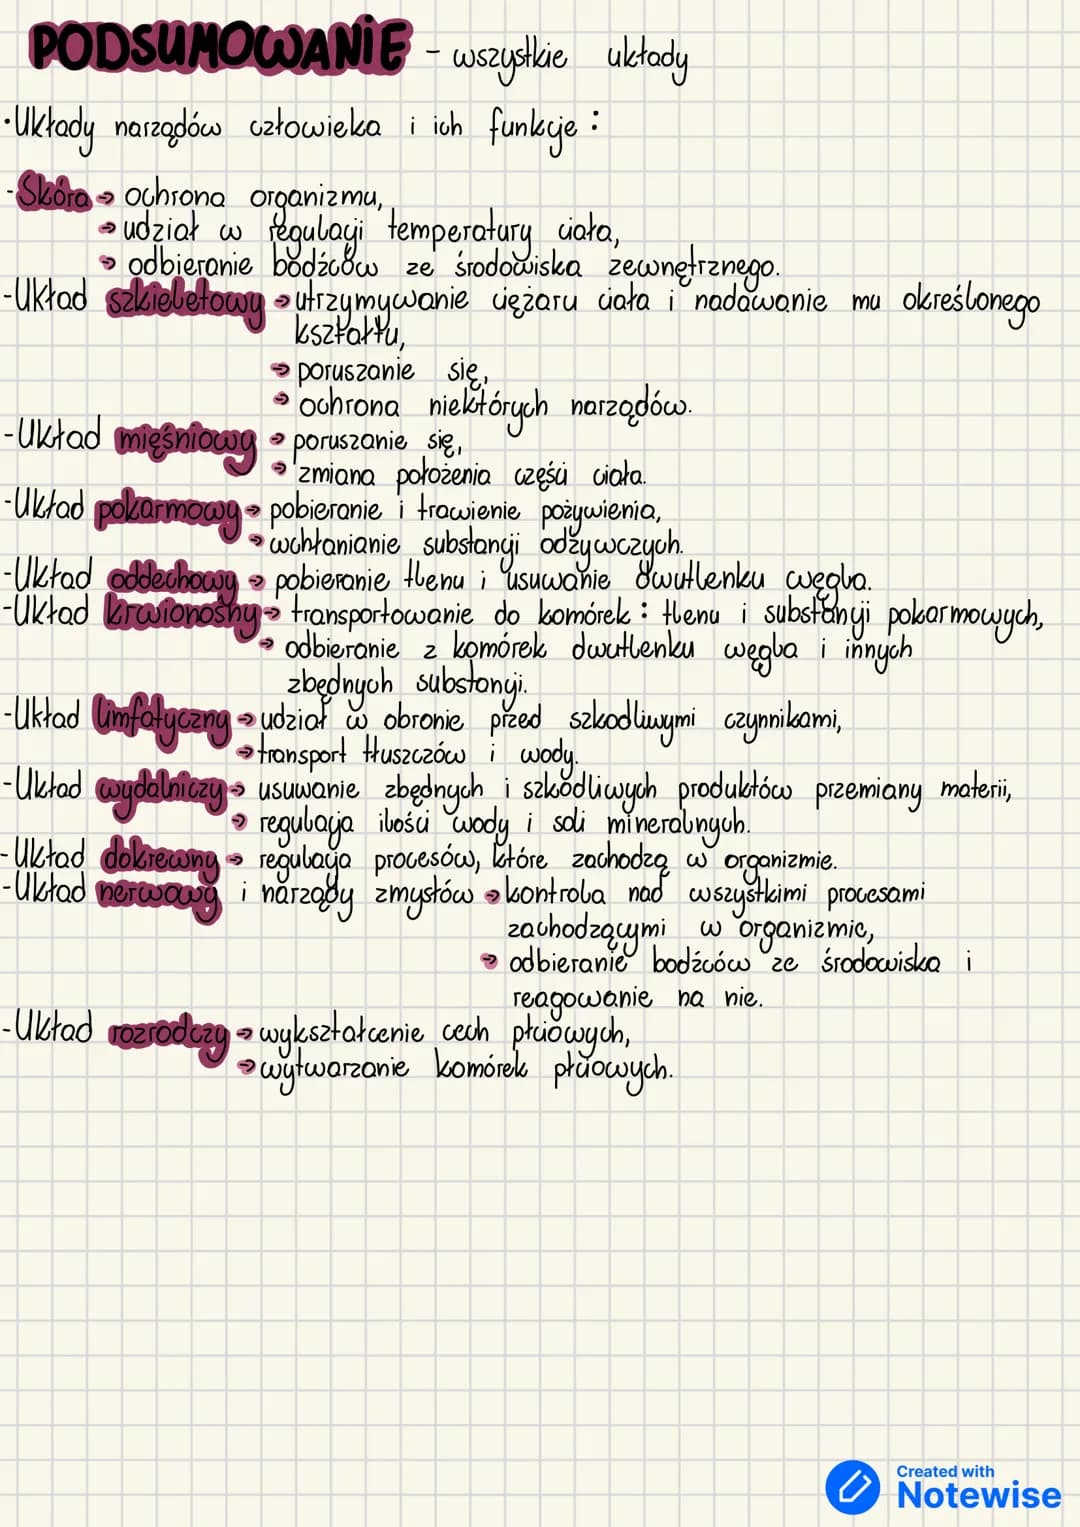 PODSUMOWANIE - wszystkie układy
•Układy narządów człowieka i ich funkcje :
-Skóra → ochrona organizmu,
→ udział w regulacji temperatury ciała,
→ odbieranie bodźców ze środowiska zewnętrznego.
-Układ szkieletowy → utrzymywanie ciężaru ciała i nadawanie mu określonego
kształtu,
→ poruszanie się,
→ ochrona niektórych narządów.
-Układ mięśniowy → poruszanie się,
→ zmiana położenia części ciała.
-Układ pokarmowy → pobieranie i trawienie pożywienia,
→ wchłanianie substancji odżywczych.
-Układ oddechowy → pobieranie tlenu i usuwanie dwutlenku węgla.
-Układ krwionośny → transportowanie do komórek : tlenu i substancji pokarmowych,
→ odbieranie z komórek dwutlenku węgla i innych
zbędnych substancji.
-Układ limfatyczny → udział w obronie przed szkodliwymi czynnikami,
→ transport tłuszczów i wody.
-Układ wydalniczy → usuwanie zbędnych i szkodliwych produktów przemiany materii,
→ regulacja ilości wody i soli mineralnych.
-Układ dokrewny → regulacja procesów, które zachodzą w organizmie.
-Układ nerwowy i narządy zmysłów → kontrola nad wszystkimi procesami
zachodzącymi w organizmie,
→ odbieranie bodźców ze środowiska i
reagowanie na nie.
-Układ rozrodczy → wykształcenie cech płciowych,
→ wytwarzanie komórek płciowych.
Created with
Notewise